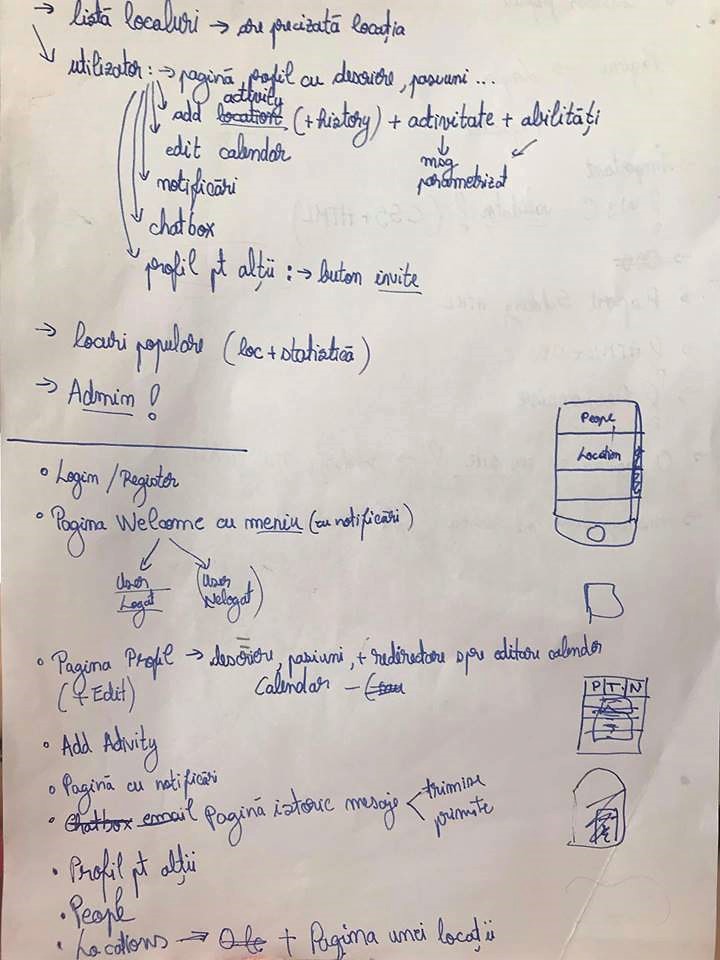 → listă localuri → are precizată locația
utilizator: → pagină profil cu descriere, pasiuni...
activity
add location (+history) + activitate + abilități
edit calendar
msg
parametrizat
notificări
chatbox
profil pt alții: → buton invite
→ locuri populare (loc + statistică)
→ Admin!
People
Location
• Login / Register
• Pagina Welcome cu meniu (cu notificări)
User Logat
(User Nelogat)
• Pagina Profil → descriere, pasiuni, + redirectare spre editare calendar
(+Edit)
Calendar -
P T N
• Add Activity
• Pagină cu notificări
• chatbox email Pagină istoric mesaje
trimise
primite
• Profil pt alții
• People
• Locations → + Pagina unei locații